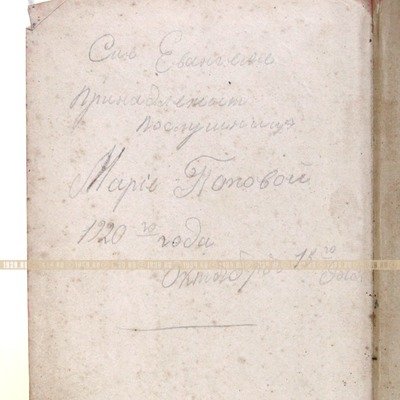 Сіе Евангеліе
принадлежит
послушнице
Маріе Поповой
1920 го года
Октября 18 го дня